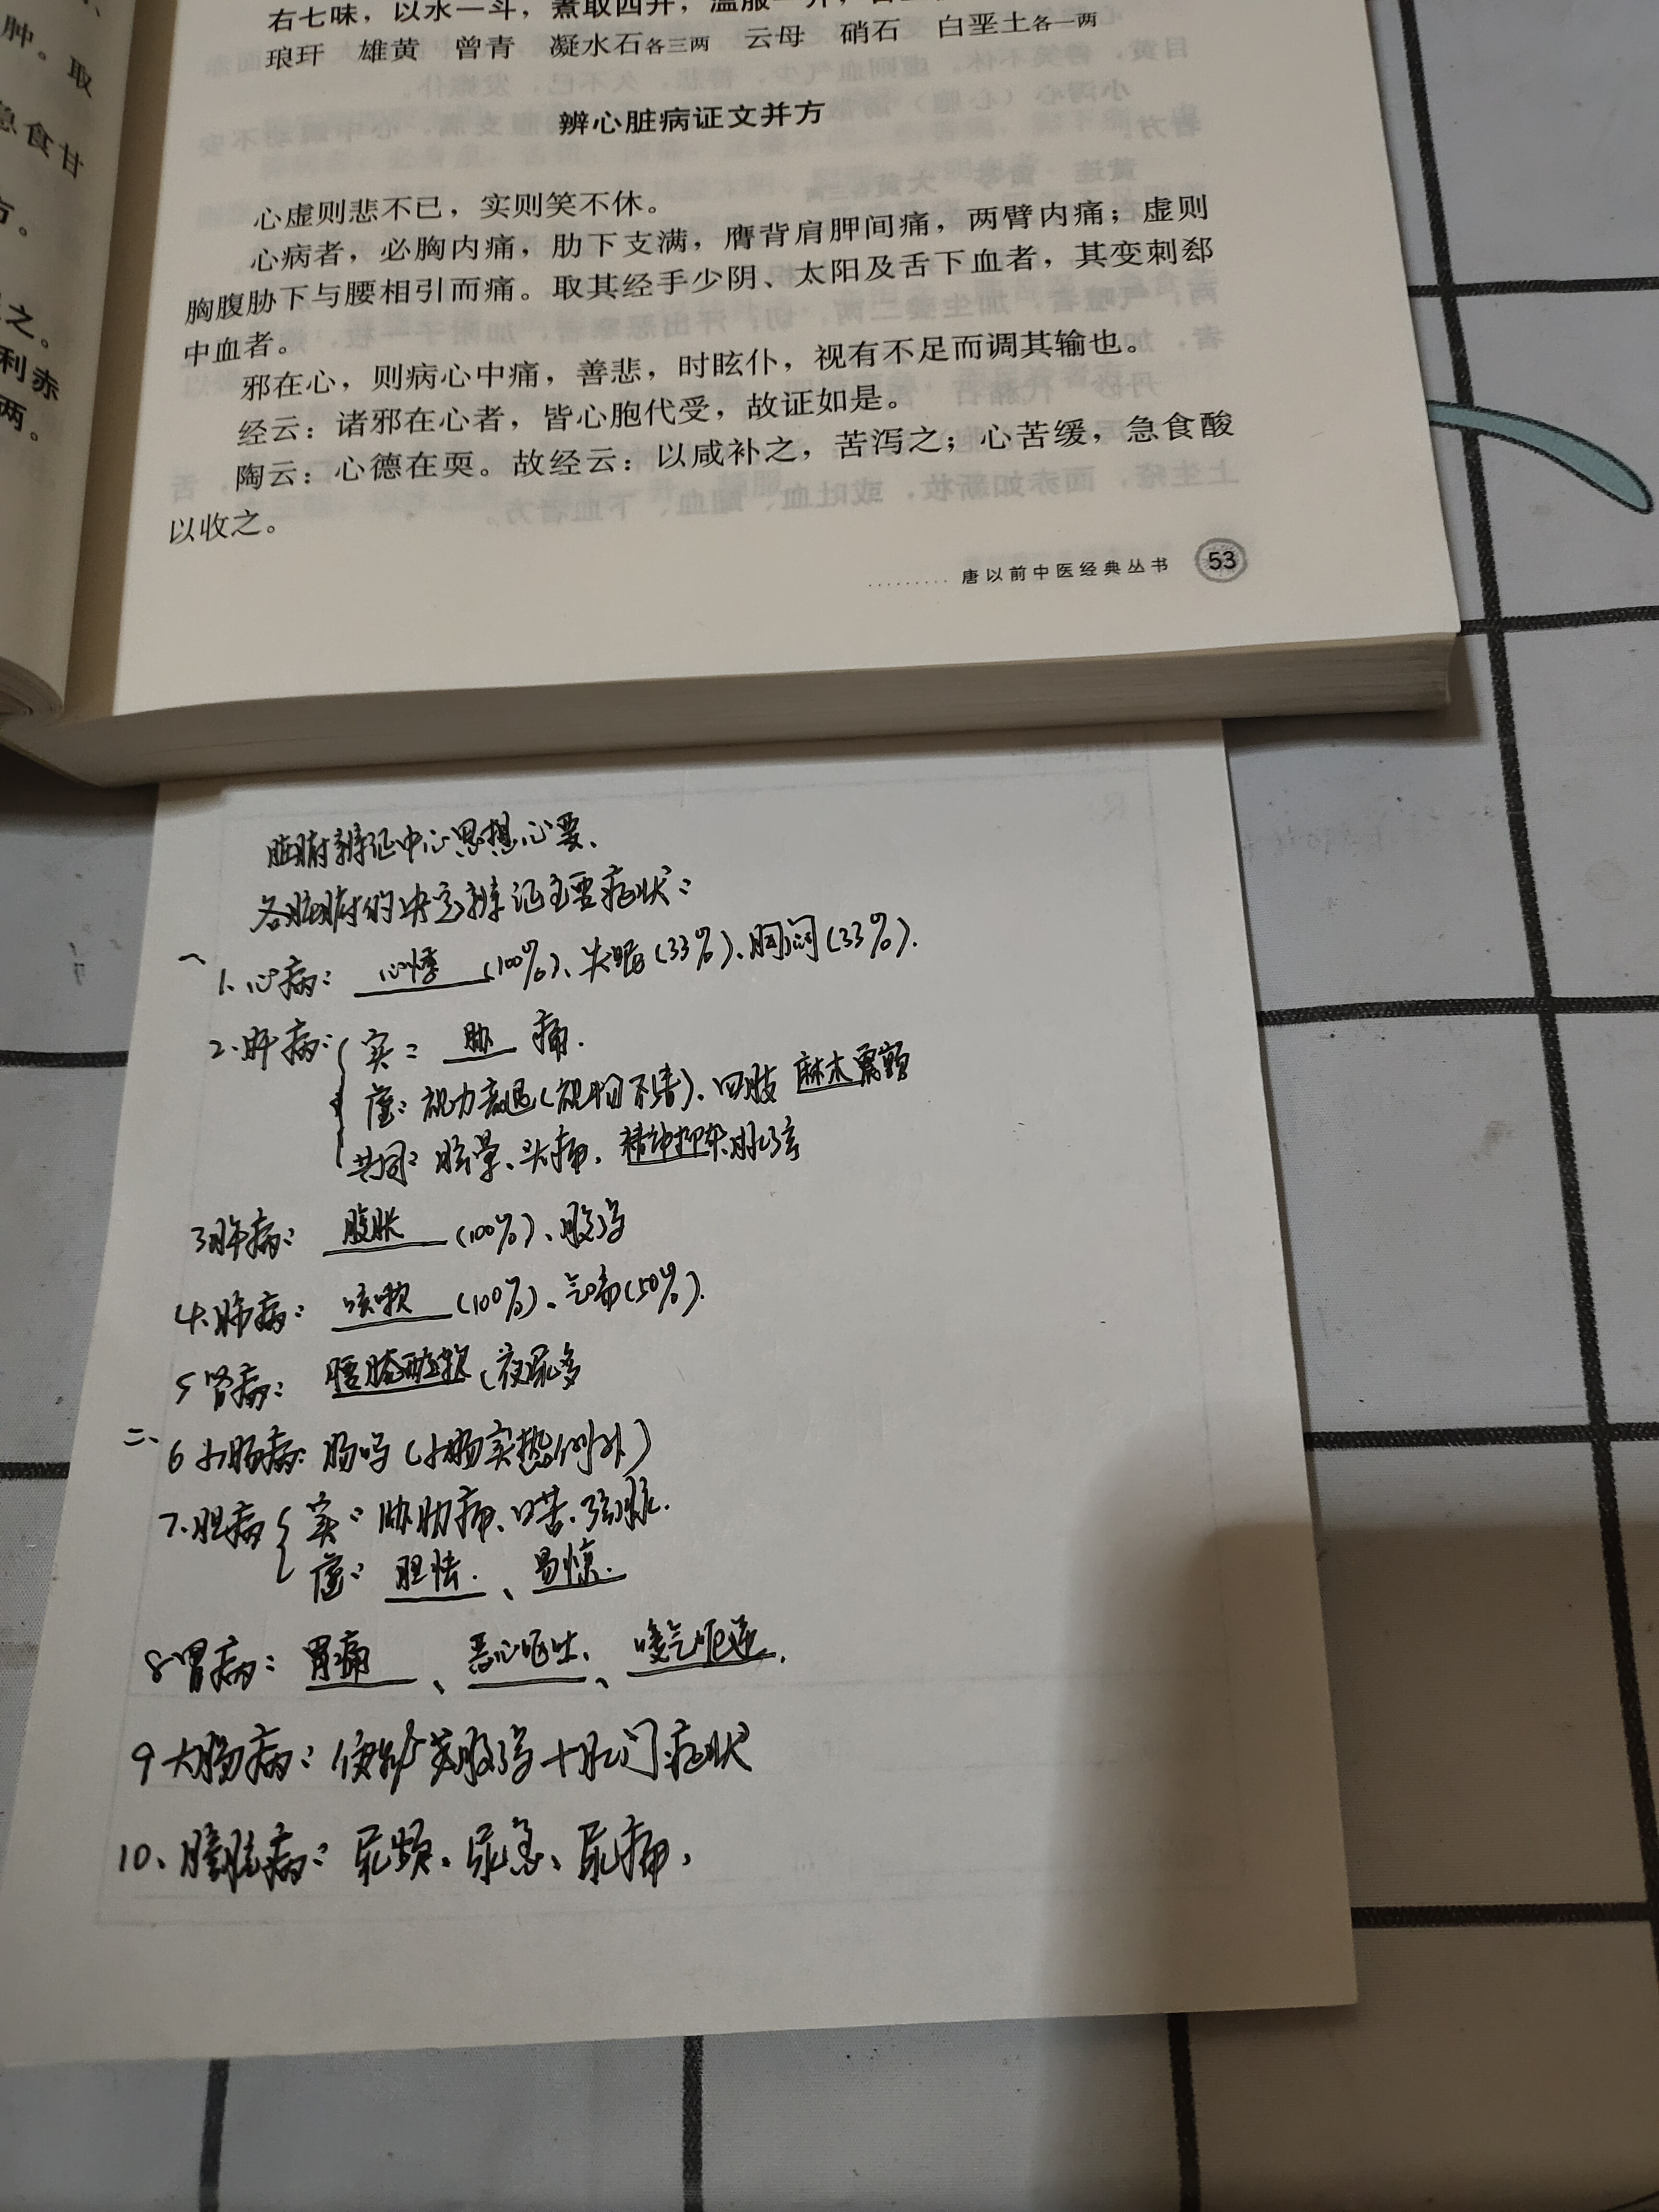 肿。取
急食甘
方。
之。
利赤
两。
右七味，以水一斗，煮取四升，温服一升，
琅玕 雄黄 曾青 凝水石各三两 云母 硝石 白垩土各一两
辨心脏病证文并方
心虚则悲不已，实则笑不休。
心病者，必胸内痛，肋下支满，膺背肩胛间痛，两臂内痛；虚则
胸腹胁下与腰相引而痛。取其经手少阴、太阳及舌下血者，其变刺郄
中血者。
邪在心，则病心中痛，善悲，时眩仆，视有不足而调其输也。
经云：诸邪在心者，皆心胞代受，故证如是。
陶云：心德在耎。故经云：以咸补之，苦泻之；心苦缓，急食酸
以收之。
唐以前中医经典丛书 53
脏腑辨证中心思想心要、
各脏腑的决定辨证主要症状：
一、1、心病：心悸(100%)、失眠(33%)、胸闷(33%).
2.肝病：实：胁痛.
虚：视力衰退(视物不清)、四肢麻木震颤
共同：眩晕、头痛、精神抑郁、脉弦
3脾病：腹胀(100%)、腹泻
4.肺病：咳嗽(100%)、气喘(50%).
5肾病：腰膝酸软、夜尿多
二、6小肠病：肠鸣(小肠实热例外)
7.胆病 实：胁肋痛、口苦、弦脉.
虚：胆怯.、易惊.
8胃病：胃痛、恶心呕吐、、嗳气呃逆.
9大肠病：便秘或腹泻+肛门症状
10、膀胱病：尿频、尿急、尿痛，